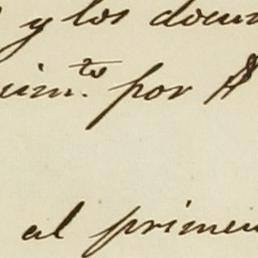 y los docum
uim.to por A
al primer